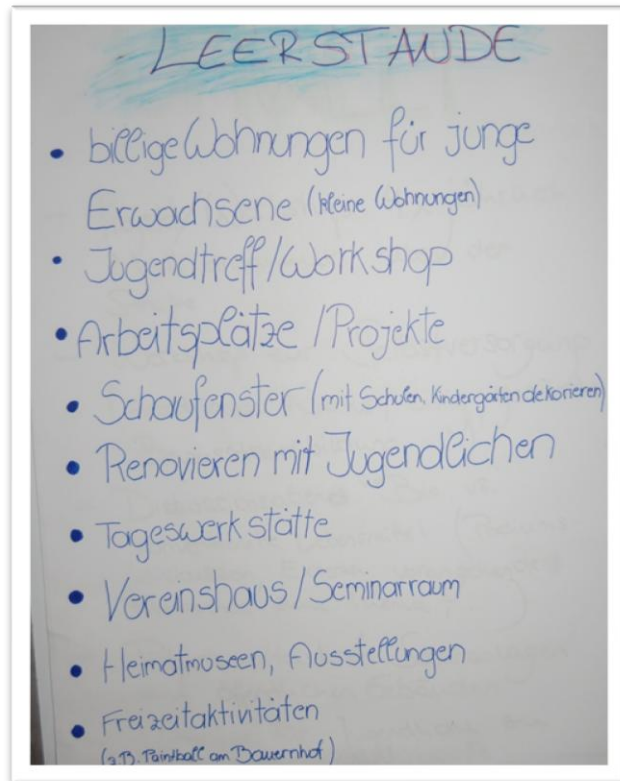 LEERSTÄUDE
• billige Wohnungen für junge
Erwachsene (kleine Wohnungen)
• Jugendtreff/Workshop
• Arbeitsplätze/Projekte
• Schaufenster (mit Schulen, Kindergärten dekorieren)
• Renovieren mit Jugendlichen
• Tageswerkstätte
• Vereinshaus/Seminarraum
• Heimatmuseen, Ausstellungen
• Freizeitaktivitäten
(z.B. Paintball am Bauernhof)